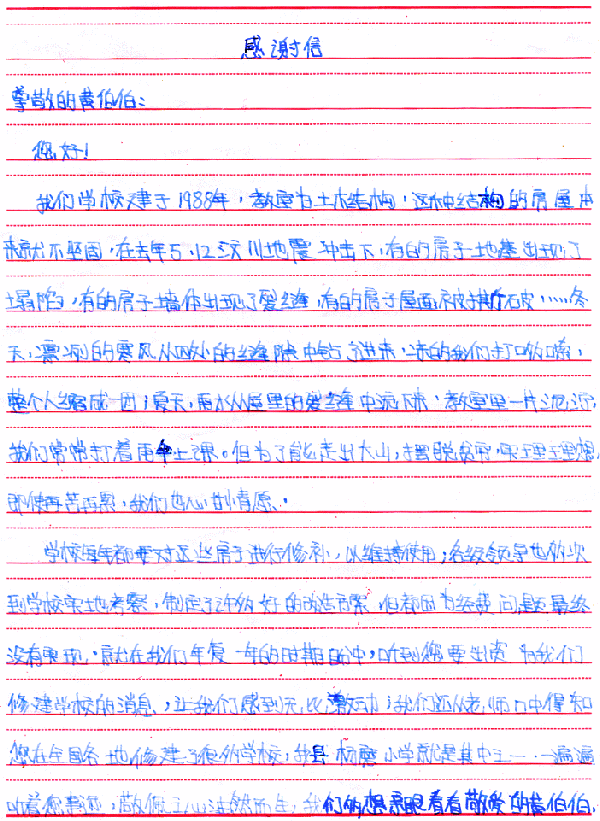 感谢信
尊敬的黄伯伯:
您好!
我们学校建于1988年,教室为土木结构,这种结构的房屋本
来就不坚固,在去年5.12汶川地震冲击下,有的房子地基出现了
塌陷,有的房子墙体出现了裂缝,有的房子屋面被掀破……冬
天,凛冽的寒风从四处的缝隙中钻了进来,冻的我们打哆嗦,
整个人缩成一团;夏天,雨水从屋里的裂缝中流下来,教室里一片泥泞,
我们常常打着雨伞上课。但为了能走出大山,摆脱贫穷,实现理想,
即使再苦再累,我们也心甘情愿。
学校每年都要对这些房子进行修补,以维持使用;各级领导也多次
到学校实地考察,制定了许多好的改造方案,但都因为经费问题最终
没有实现。就在我们年复一年的时期盼中,听到您要出资为我们
修建学校的消息,让我们感到无比激动;我们还从老师口中得知
您在全国各地修建了很多学校,我县杨磨小学就是其中之一。一遍遍
听着您事迹,敬佩之心油然而生,我们的想亲眼看看敬爱的黄伯伯,